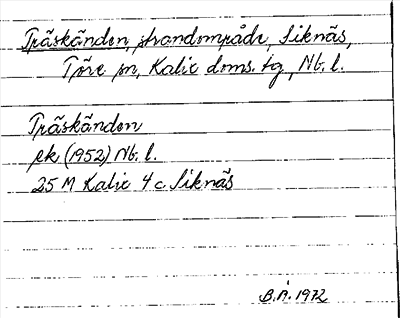 Träskänden, strandområde, Siknäs,
Töre sn, Kalix doms. tg, Nb. l.
Träskänden
ek (1952) Nb. l.
25 M Kalix 4 c Siknäs
B.Å. 1972